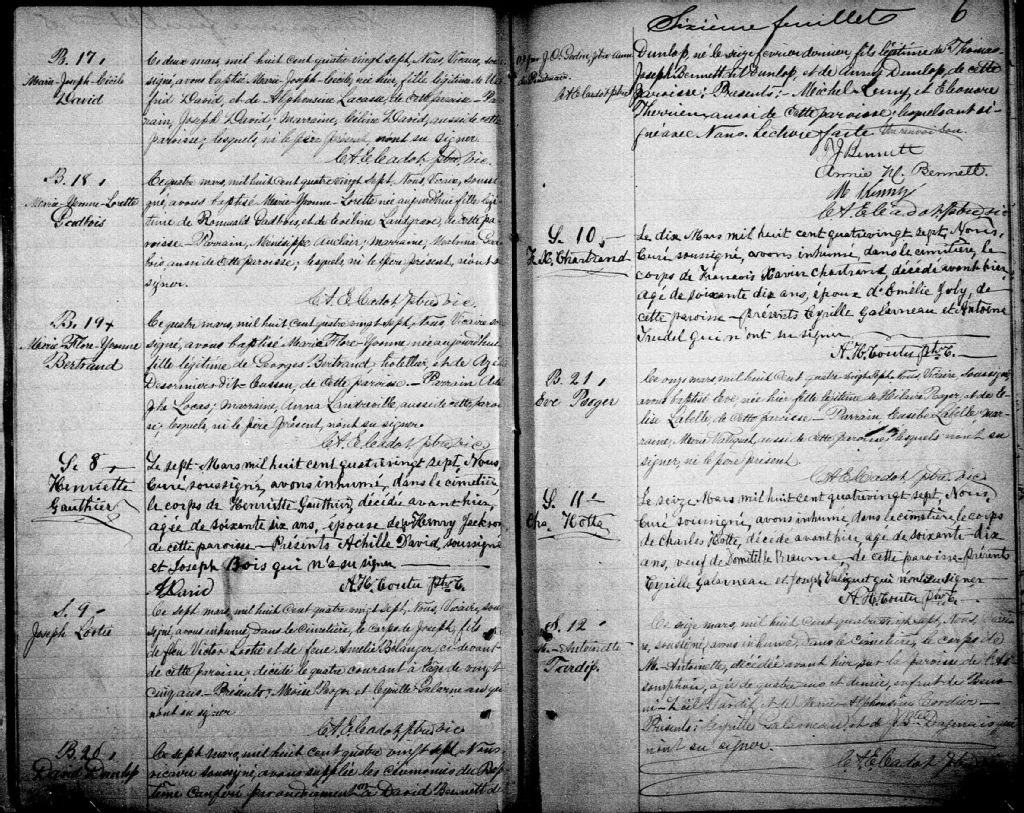 B. 17,
Marie-Joseph-Cécile
David
Ce deux mars, mil huit cent quatre vingt sept, Nous, Vicaire, sous-
signé, avons baptisé Marie-Joseph-Cécile, née hier, fille légitime de
David, et de Alphonsine Lacasse, de cette paroisse - Par-
rain, Joseph David; Marraine, David, aussi de cette
paroisse; lesquels, ni le père présent, n'ont su signer.
A. E. Cadot, ptre vic.
B. 18,
Marie-Yvonne-Lorette
Dadbois
Ce quatre mars, mil huit cent quatre vingt sept, Nous, Vicaire, sousi-
gné, avons baptisé Marie-Yvonne-Lorette née aujourd'hui fille légi-
time de Romuald Dadbois, et de de cette pa-
roisse - Parrain, Auclair; marraine,
aussi de cette paroisse; lesquels, ni le père présent, n'ont su
signer.
A. E. Cadot, ptre vic.
B. 19
Marie-Flore-Yvonne
Bertrand
Ce quatre mars, mil huit cent quatre vingt sept, Nous, Vicaire sou-
signé, avons baptisé Marie Flore-Yvonne née aujourd'hui
fille légitime de Georges Bertrand hotellier, et de
Desormiers-dit-Cusson, de cette paroisse - Parrain
Jph Lucas; marraine, Anna aussi de cette parois-
se; lesquels, ni le père présent, n'ont su signer.
A. E. Cadot, ptre vic
S. 8
Henriette
Gauthier
Le sept Mars mil huit cent quatrevingt sept, Nous
Curé soussigné, avons inhumé, dans le cimetière,
le corps de Henriette Gauthier, décédée avant hier,
agée de soixante dix ans, épouse de Henry Jackson
de cette paroisse - Présents Achille David, soussigné
et Joseph Bois qui n'a su signer
A David A. H. Coutu Ptre C.
S. 9
Joseph Lortie
Ce sept mars, mil huit cent quatre vingt sept, Nous, Vicaire, sou-
signé, avons inhumé, dans le cimetière, le corps de Joseph, fils
de feu Victor Lortie et de feue Amélie Bélanger, ci-devant
de cette paroisse, décédé le quatre courant à l'âge de vingt
cinq ans - Présents: Moïse et Cyrille Galarneau qui
n'ont su signer
A. E. Cadot, ptre vic
B. 20,
David Dunlop
Ce sept mars, mil huit cent quatre vingt sept Nous
vicaire soussigné, avons suppléé les cérémonies du Bap-
tême conféré par ondoiement à David Bennett d
Sixième feuillet 6
A. E. Cadot ptre
Dunlop, né le seize février dernier, fils légitime de Thomas
Joseph Bennett dit Dunlop, et de Anny Dunlop, de cette
paroisse; Présents: - Michel Kenny, et Eléonore
Therrien, aussi de cette paroisse; lesquels ont si-
gné avec Nous. Lecture faite Un renvoi bon.
T J Bennett
Annie Bennett
M Kenny
A. E. Cadot, ptre vic
S. 10
F. X. Chartrand
Le dix Mars mil huit cent quatrevingt sept, Nous
Curé soussigné, avons inhumé, dans le cimetière, le
corps de François Xavier Chartrand, décédé avant hier,
agé de soixante dix ans, époux d'Emélie Joly, de
cette paroisse - présents Cyrille Galarneau et Antoine
Trudel qui n'ont su signer
A. H. Coutu Ptre C.
B. 21,
Eve Pesger
Ce onze mars, mil huit cent quatre vingt sept Nous, Vicaire soussigné
avons baptisé Eve née hier fille légitime de et de
Labelle, de cette paroisse - Parrain, Eusèbe Labelle, mar-
raine, Marie Valiquet, aussi de cette paroisse; lesquels n'ont su
signer, ni le père présent.
A. E. Cadot, ptre vic
S. 11
Chs. Hotte
Le seize Mars mil huit cent quatrevingt sept, Nous
Curé soussigné, avons inhumé dans le cimetière le corps
de Charles Hotte, décédé avant hier, agé de soixante-dix
ans, veuf de Domitilde Beaume, de cette paroisse - Présents
Cyrille Galarneau et Joseph Valiquet qui n'ont su signer
A. H. Coutu Ptre C.
S. 12
M.-Antoinette
Tardif
Ce seize mars, mil huit cent quatre vingt sept, Nous, Vicaire
soussigné, avons inhumé, dans le cimetière, le corps de
M.-Antoinette, décédée avant hier sur la paroisse de l'As-
somption, agée de quatre ans et demie, enfant de
Noël Tardif, et de Marie Alphonsine Cordier -
Présents: Cyrille Galarneau, et de Dagenais qui
n'ont su signer.
A. E. Cadot Ptre